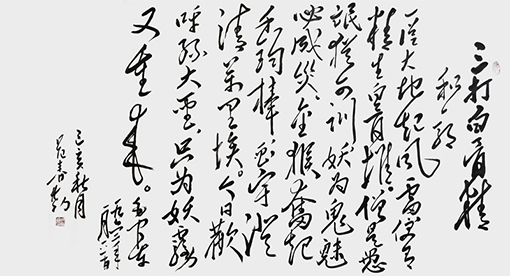 三打白骨精
和郭
一從大地起风雷便有
精生白骨堆僧是愚
氓犹可训妖为鬼魅
必成災金猴奮起
千钧棒玉宇澄
清萬里埃今日歡
呼孫大圣只为妖霧
又重来。
毛泽东
一九六一年
己亥秋月